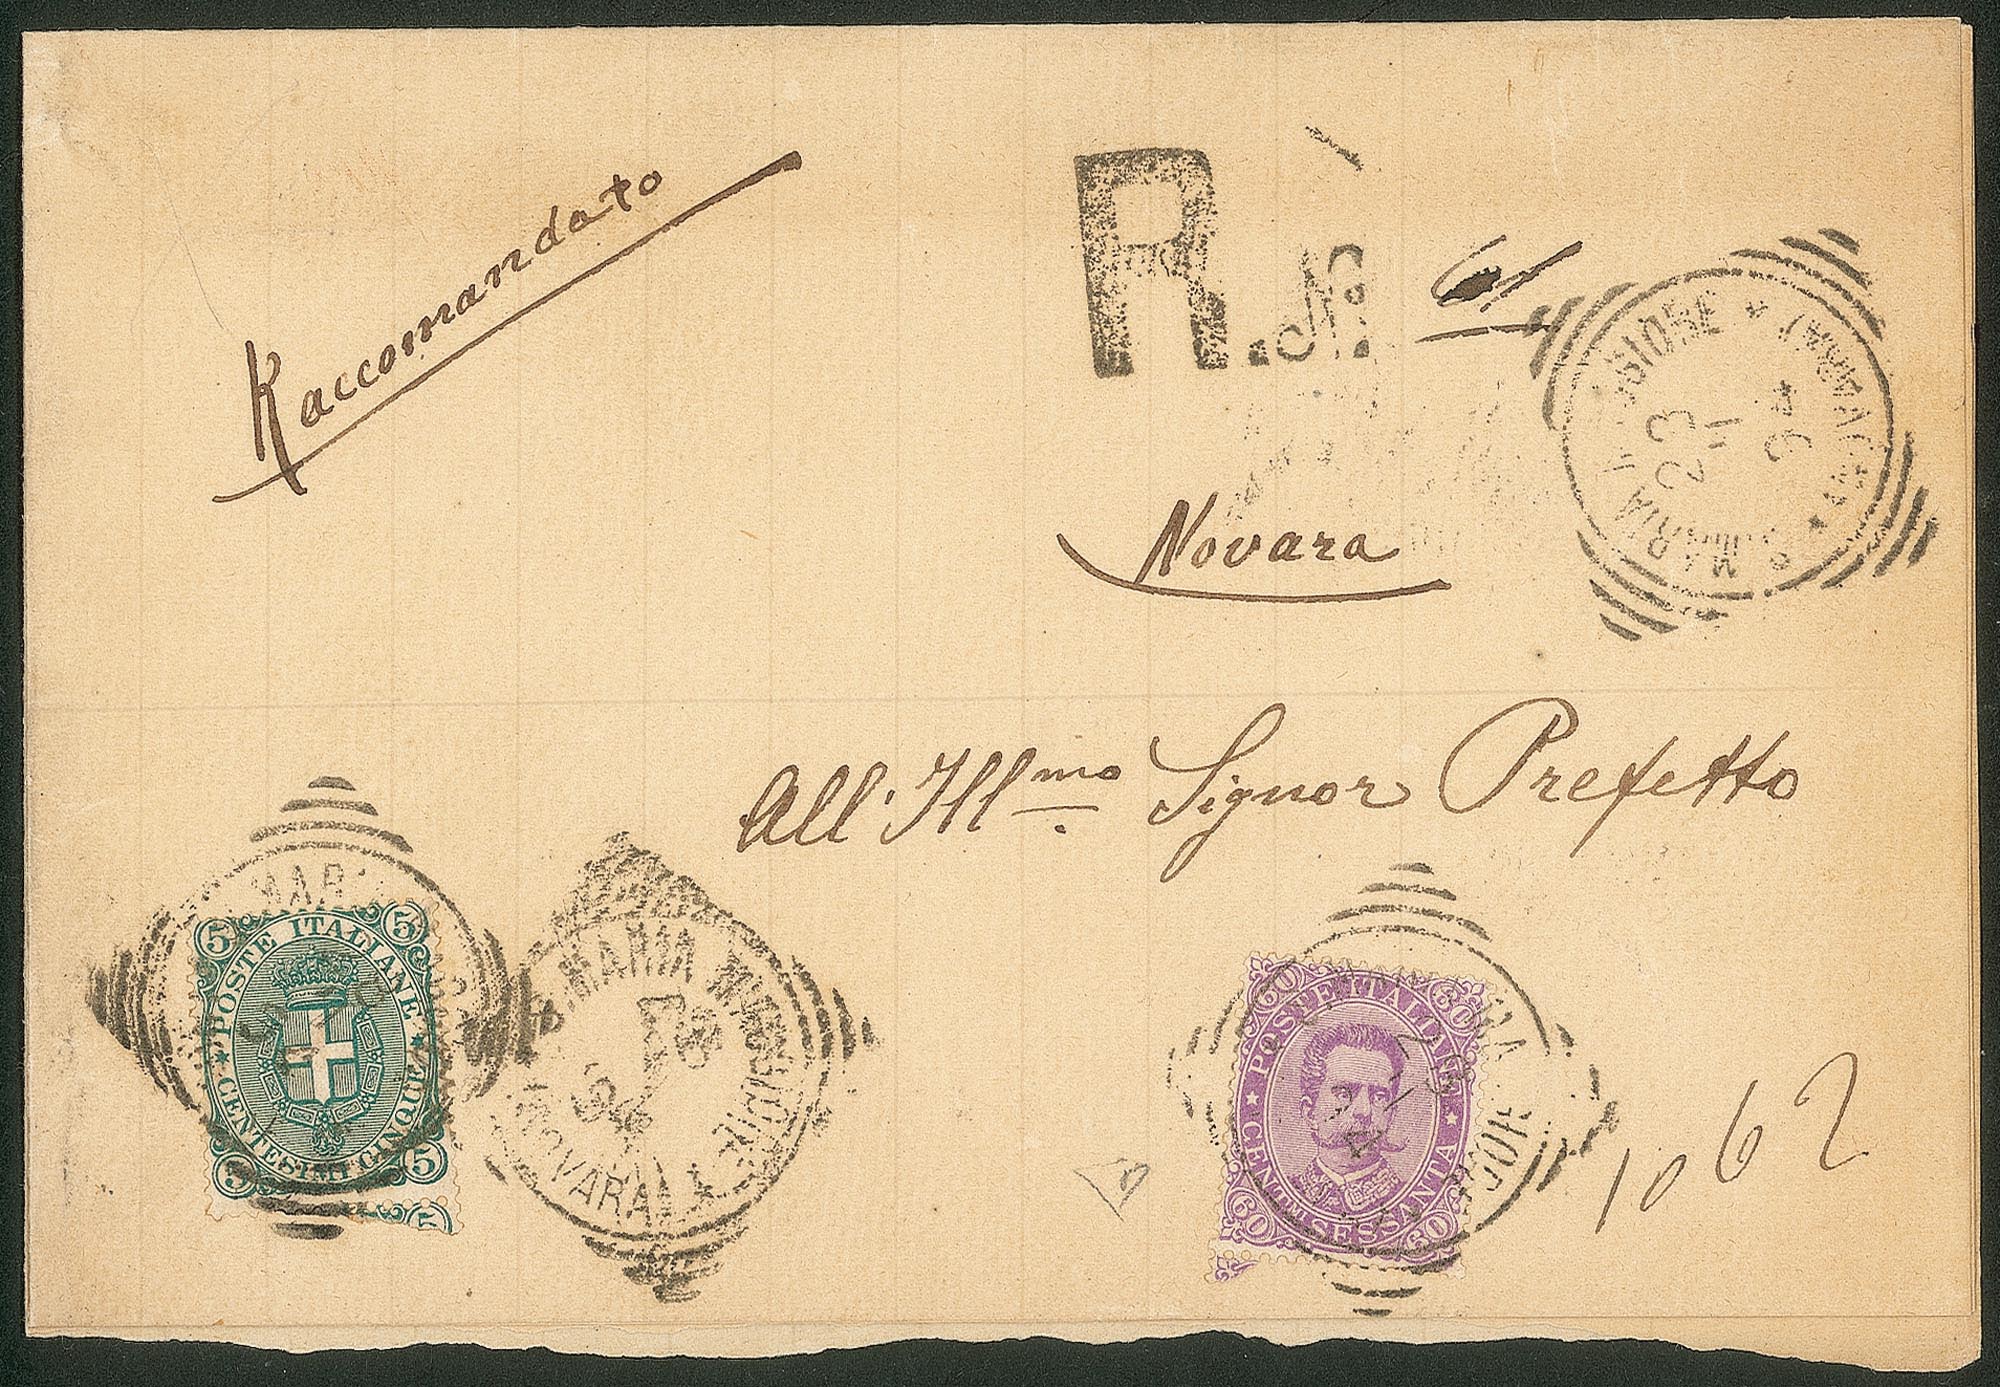 Raccomandato
R. N.
Novara
MARIA MAGGIORE
23
11
94
All' Ill.mo Signor Prefetto
5 POSTE ITALIANE 5
5 CENTESIMI CINQUE 5
S. MARIA MAGGIORE
(NOVARA)
60 POSTE ITALIANE 60
60 CENTESIMI SESSANTA 60
1062